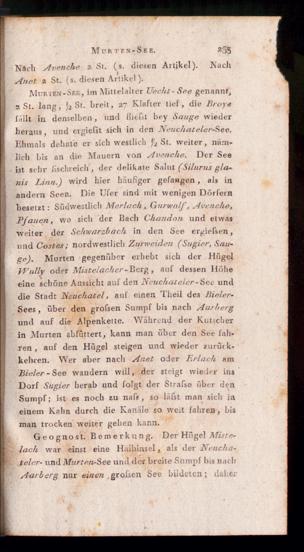 MURTEN-SEE. 255
Nach Avenche 2 St. (s. diesen Artikel). Nach
Anet 2 St. (s. diesen Artikel).
MURTEN-SEE, im Mittelalter Uecht-See genannt,
2 St. lang, ½ St. breit, 27 Klafter tief, die Broye
fällt in denselben, und fließt bey Sauge wieder
heraus, und ergießt sich in den Neuchateler-See.
Ehmals dehnte er sich westlich ½ St. weiter, näm-
lich bis an die Mauern von Avenche. Der See
ist sehr fischreich, der delikate Salut (Silurus gla-
nis Linn.) wird hier häufiger gefangen, als in
andern Seen. Die Ufer sind mit wenigen Dörfern
besetzt: Südwestlich Merlach, Gurwolf, Avenche,
Pfauen, wo sich der Bach Chandon und etwas
weiter der Schwarzbach in den See ergießen,
und Costes; nordwestlich Zurweiden (Sugier, Sau-
ge). Murten gegenüber erhebt sich der Hügel
Wully oder Mistelacher-Berg, auf dessen Höhe
eine schöne Aussicht auf den Neuchateler-See und
die Stadt Neuchatel, auf einen Theil des Bieler-
Sees, über den großen Sumpf bis nach Aarberg
und auf die Alpenkette. Während der Kutscher
in Murten abfüttert, kann man über den See fah-
ren, auf den Hügel steigen und wieder zurück-
kehren. Wer aber nach Anet oder Erlach am
Bieler-See wandern will, der steigt wieder ins
Dorf Sugier herab und folgt der Straße über den
Sumpf; ist es noch zu naß, so läßt man sich in
einem Kahn durch die Kanäle so weit fahren, bis
man trocken weiter gehen kann.
Geognost. Bemerkung. Der Hügel Miste-
lach war einst eine Halbinsel, als der Neucha-
teler- und Murten-See und der breite Sumpf bis nach
Aarberg nur einen großen See bildeten; daher